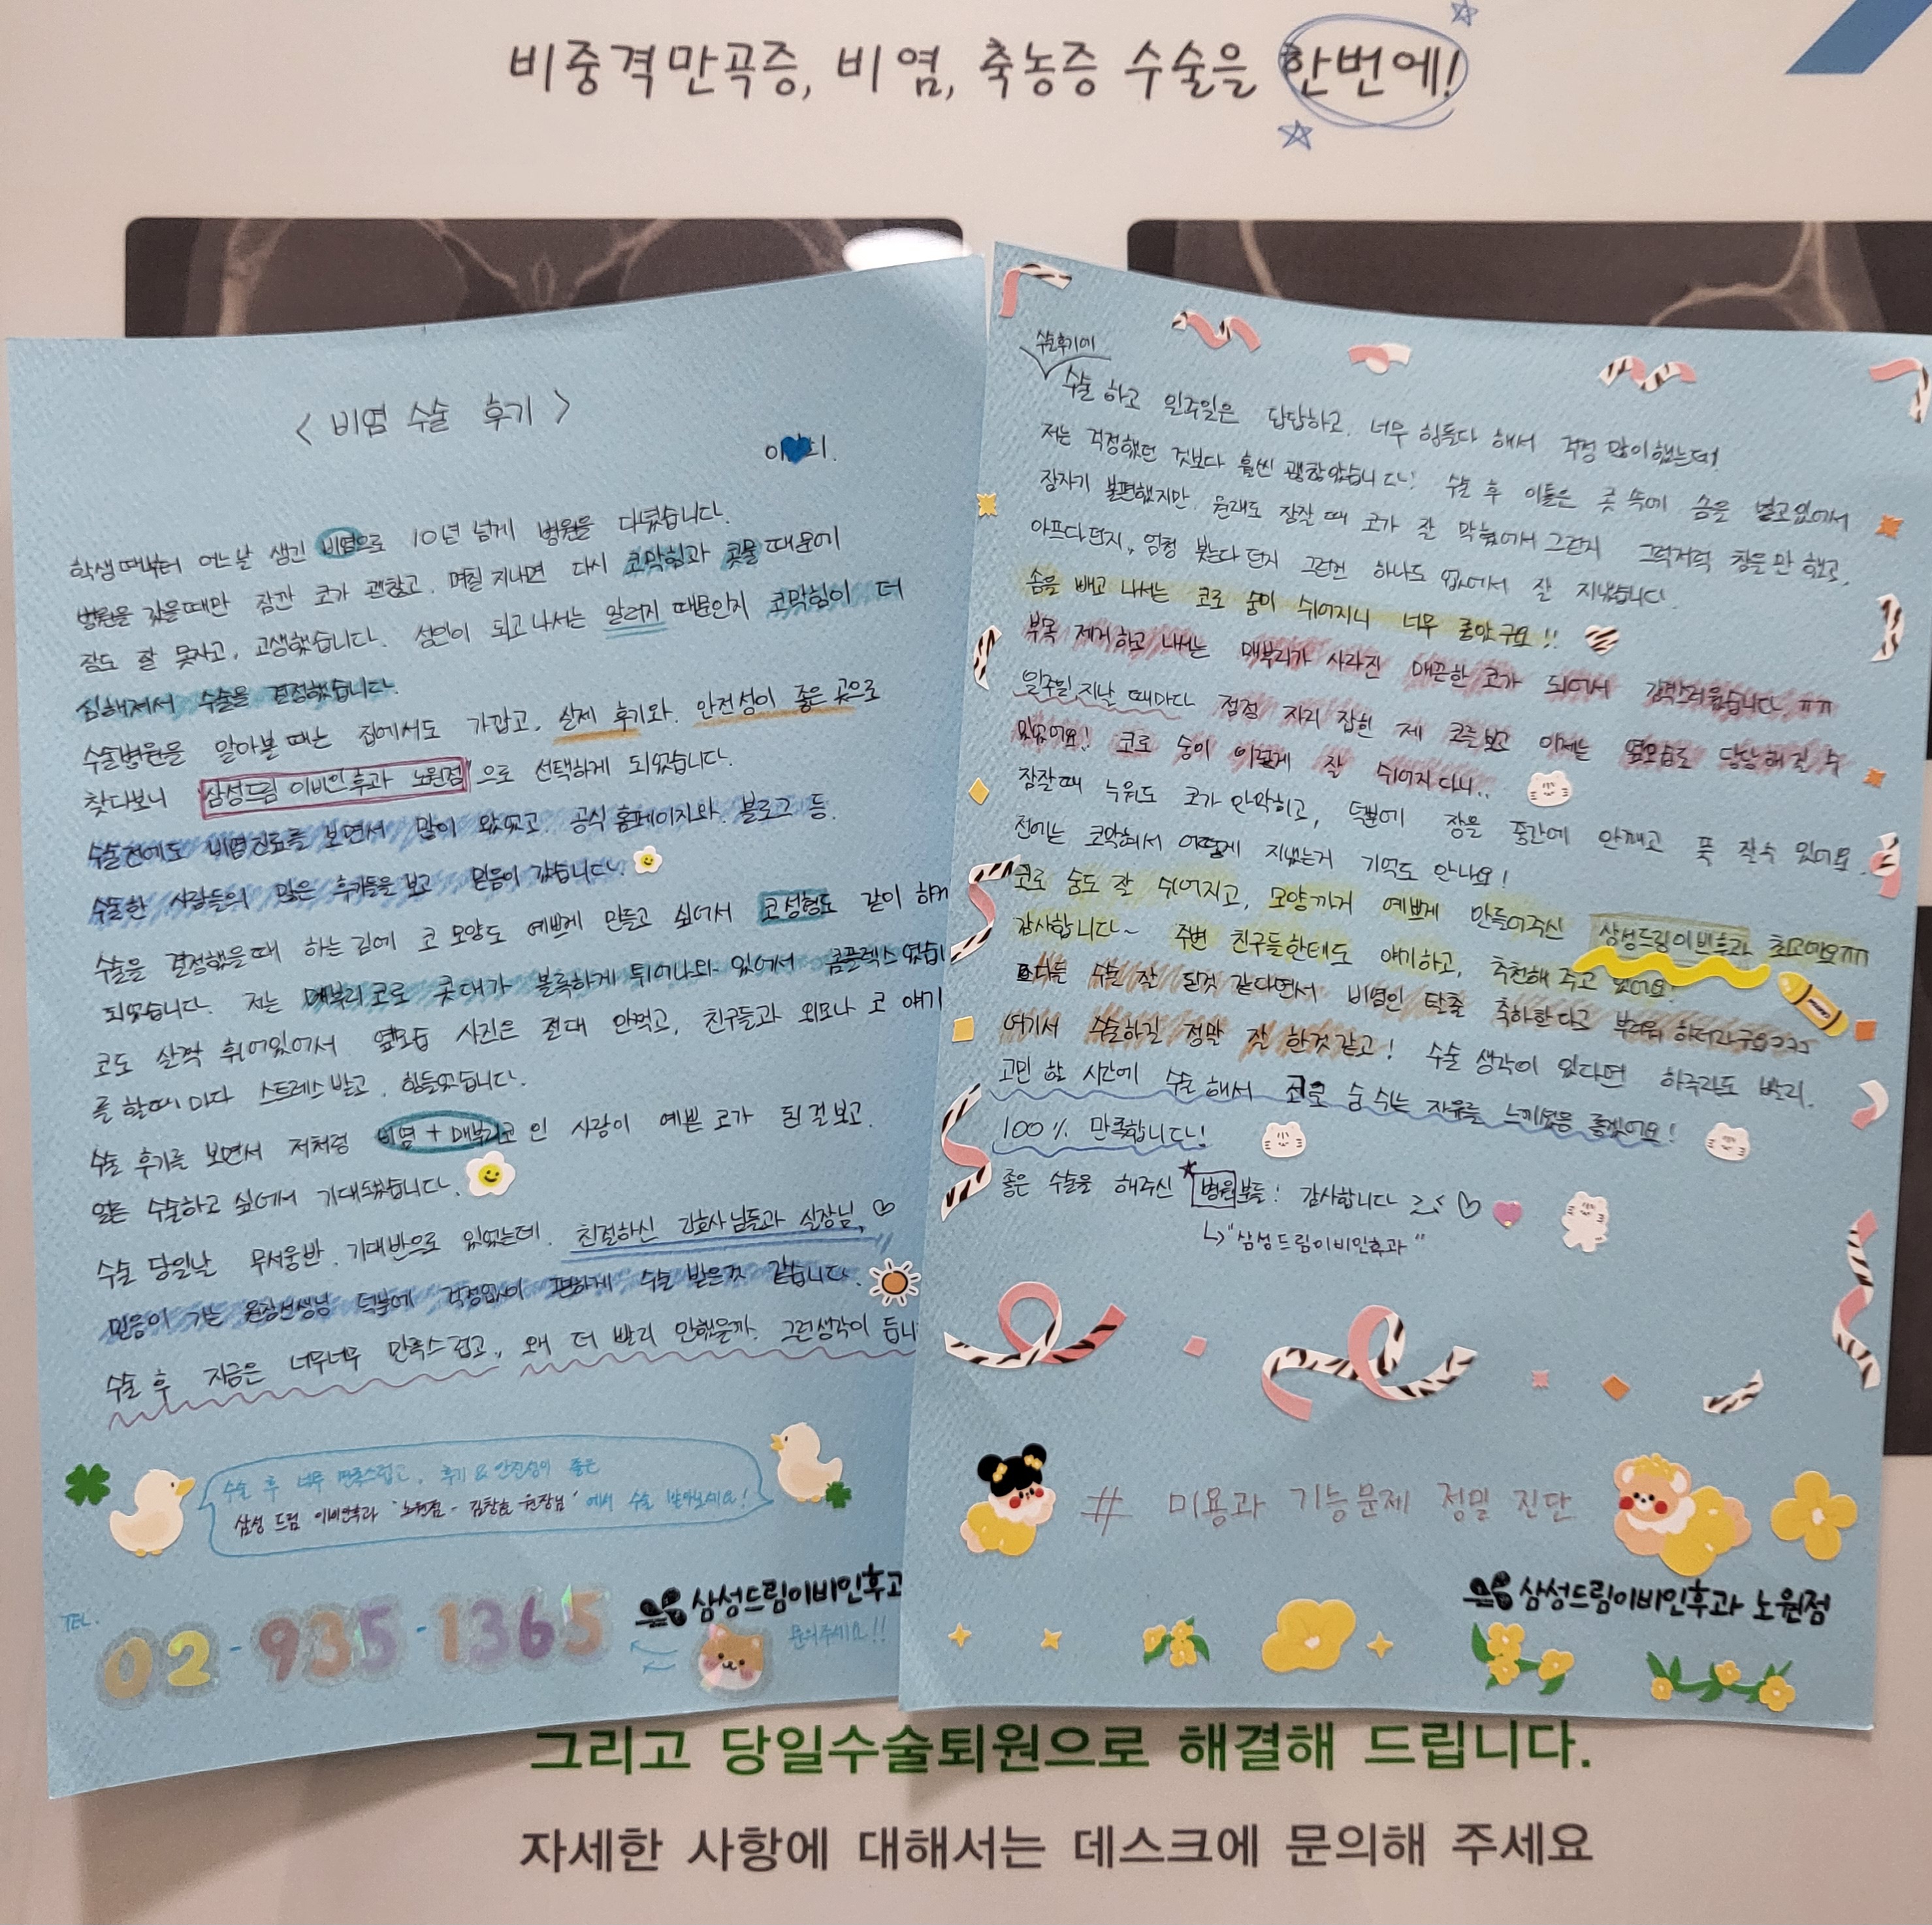 비중격만곡증, 비염, 축농증 수술을 한번에!
< 비염 수술 후기 >
학생때부터 어느날 생긴 비염으로 10년 넘게 병원을 다녔습니다.
병원을 갔을때만 잠깐 코가 괜찮고, 며칠 지나면 다시 코막힘과 콧물 때문에
잠도 잘 못자고, 고생했습니다. 성인이 되고 나서는 알러지 때문인지 코막힘이 더
심해져서 수술을 결정했습니다.
수술병원을 알아볼 때는 집에서도 가깝고, 실제 후기와 안전성이 좋은 곳으로
찾다보니 '삼성드림 이비인후과 노원점'으로 선택하게 되었습니다.
수술전에도 비염진료를 보면서 많이 왔었고, 공식 홈페이지와 블로그 등.
수술한 사람들의 많은 후기들을 보고 믿음이 갔습니다.
수술을 결정했을때 하는김에 코 모양도 예쁘게 만들고 싶어서 코성형도 같이 하게
되었습니다. 저는 매부리코로 콧대가 볼록하게 튀어나와 있어서 콤플렉스였습니
코도 살짝 휘어있어서 옆모습 사진은 절대 안찍고, 친구들과 외모나 코 얘기
를 할때마다 스트레스받고, 힘들었습니다.
수술 후기를 보면서 저처럼 비염+매부리코인 사람이 예쁜 코가 된걸보고.
얼른 수술하고 싶어서 기대됐습니다.
수술 당일날 무서움반. 기대반으로 있었는데. 친절하신 간호사님들과 실장님, ♡
믿음이 가는 원장선생님 덕분에 걱정없이 편하게 수술 받은것 같습니다.
수술 후 지금은 너무너무 만족스럽고, 왜 더 빨리 안했을까. 그런생각이 듭니
수술 후 너무 만족스럽고, 후기&안전성이 좋은
삼성 드림 이비인후과 '노원점 - 김창효 원장님' 에서 수술 받아보세요!
TEL.
02-935-1365
삼성드림이비인후과
문의주세요!!
수술후기에
수술 하고 일주일은 답답하고, 너무 힘들다 해서 걱정 많이했는데
저는 걱정했던 것보다 훨씬 괜찮았습니다! 수술 후 이틀은 콧속에 솜을 넣고있어서
잠자기 불편했지만, 원래도 잠잘 때 코가 잘 막혔어서 그런지 그럭저럭 참을만 했고,
아프다던지, 엄청 붓는다던지 그런건 하나도 없어서 잘 지냈습니다.
솜을 빼고 나서는 코로 숨이 쉬어지니 너무 좋았구요!!
부목 제거하고 나서는 매부리가 사라진 매끈한 코가 되어서 감격스러웠습니다ㅠㅠ
일주일 지날 때마다 점점 자리 잡힌 제 코를보고 이제는 옆모습도 당당해질 수
있었어요! 코로 숨이 이렇게 잘 쉬어지다니..
잠잘때 누워도 코가 안막히고, 덕분에 잠을 중간에 안깨고 푹 잘수 있어요.
전에는 코막혀서 어떻게 지냈는지 기억도 안나요!
코로 숨도 잘 쉬어지고, 모양까지 예쁘게 만들어주신 삼성드림이비후과 최고예요ㅠㅠ
감사합니다~ 주변 친구들한테도 얘기하고, 추천해 주고 있어요!
다들 수술 잘 될것 같다면서 비염인 탈출 축하한다고 부러워 하더라구요ㅋㅋㅋ
여기서 수술하길 정말 잘 한것 같고! 수술 생각이 있다면 하루라도 빨리.
고민 할 시간에 수술해서 코로 숨 쉬는 자유를 느끼셨음 좋겠어요!
100% 만족합니다!
좋은 수술을 해주신 병원분들! 감사합니다 ♡
↳"삼성드림이비인후과"
# 미용과 기능문제 정밀 진단
삼성드림이비인후과 노원점
그리고 당일수술퇴원으로 해결해 드립니다.
자세한 사항에 대해서는 데스크에 문의해 주세요